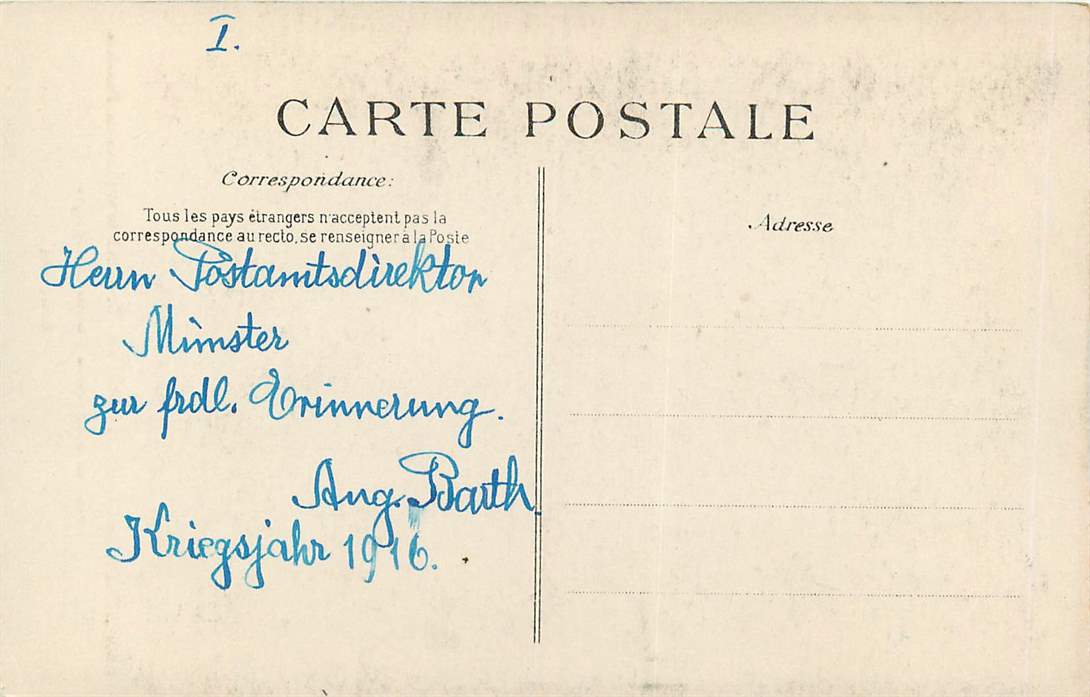 I.
CARTE POSTALE
Correspondance:
Tous les pays étrangers n'acceptent pas la
correspondance au recto, se renseigner à la Poste
Adresse
Herrn Postamtsdirektor
Münster
zur frdl. Erinnerung.
Aug. Barth.
Kriegsjahr 1916.